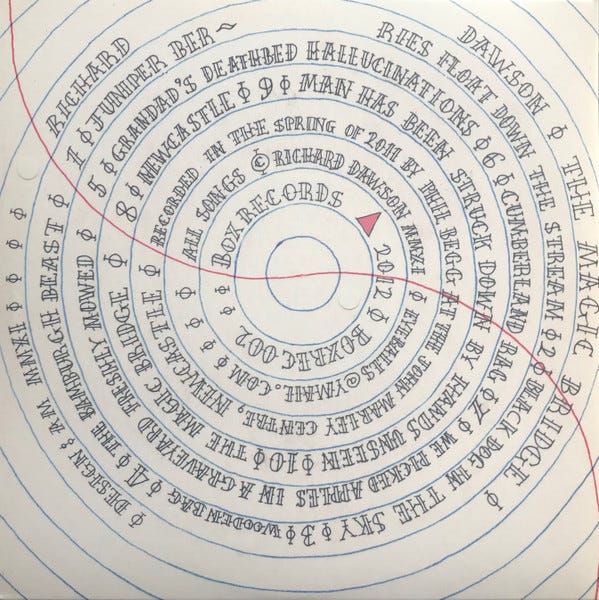 RICHARD DAWSON ϕ THE MAGIC BRIDGE ϕ
ϕ DESIGN & AM MMXI ϕ ϕ ϕ ϕ
1 ϕ JUNIPER BER~RIES FLOAT DOWN THE STREAM ϕ 2 ϕ BLACK DOG IN THE SKY ϕ 3 ϕ WOODEN BAG ϕ 4 ϕ THE BAMBURGH BEAST ϕ
5 ϕ GRANDAD'S DEATHBED HALLUCINATIONS ϕ 6 ϕ CUMBERLAND BAG ϕ 7 ϕ WE PICKED APPLES IN A GRAVEYARD FRESHLY MOWED ϕ
8 ϕ NEWCASTLE ϕ 9 ϕ MAN HAS BEEN STRUCK DOWN BY HANDS UNSEEN ϕ 10 ϕ THE MAGIC BRIDGE ϕ
RECORDED IN THE SPRING OF 2011 BY PHIL BEGG AT THE JOHN MARLEY CENTRE, NEWCASTLE ϕ
ALL SONGS © RICHARD DAWSON MMXI ϕ EYEBALLS@YMAIL.COM ϕ ϕ
BOX RECORDS 2012 ϕ BOXREC002 ϕ ϕ